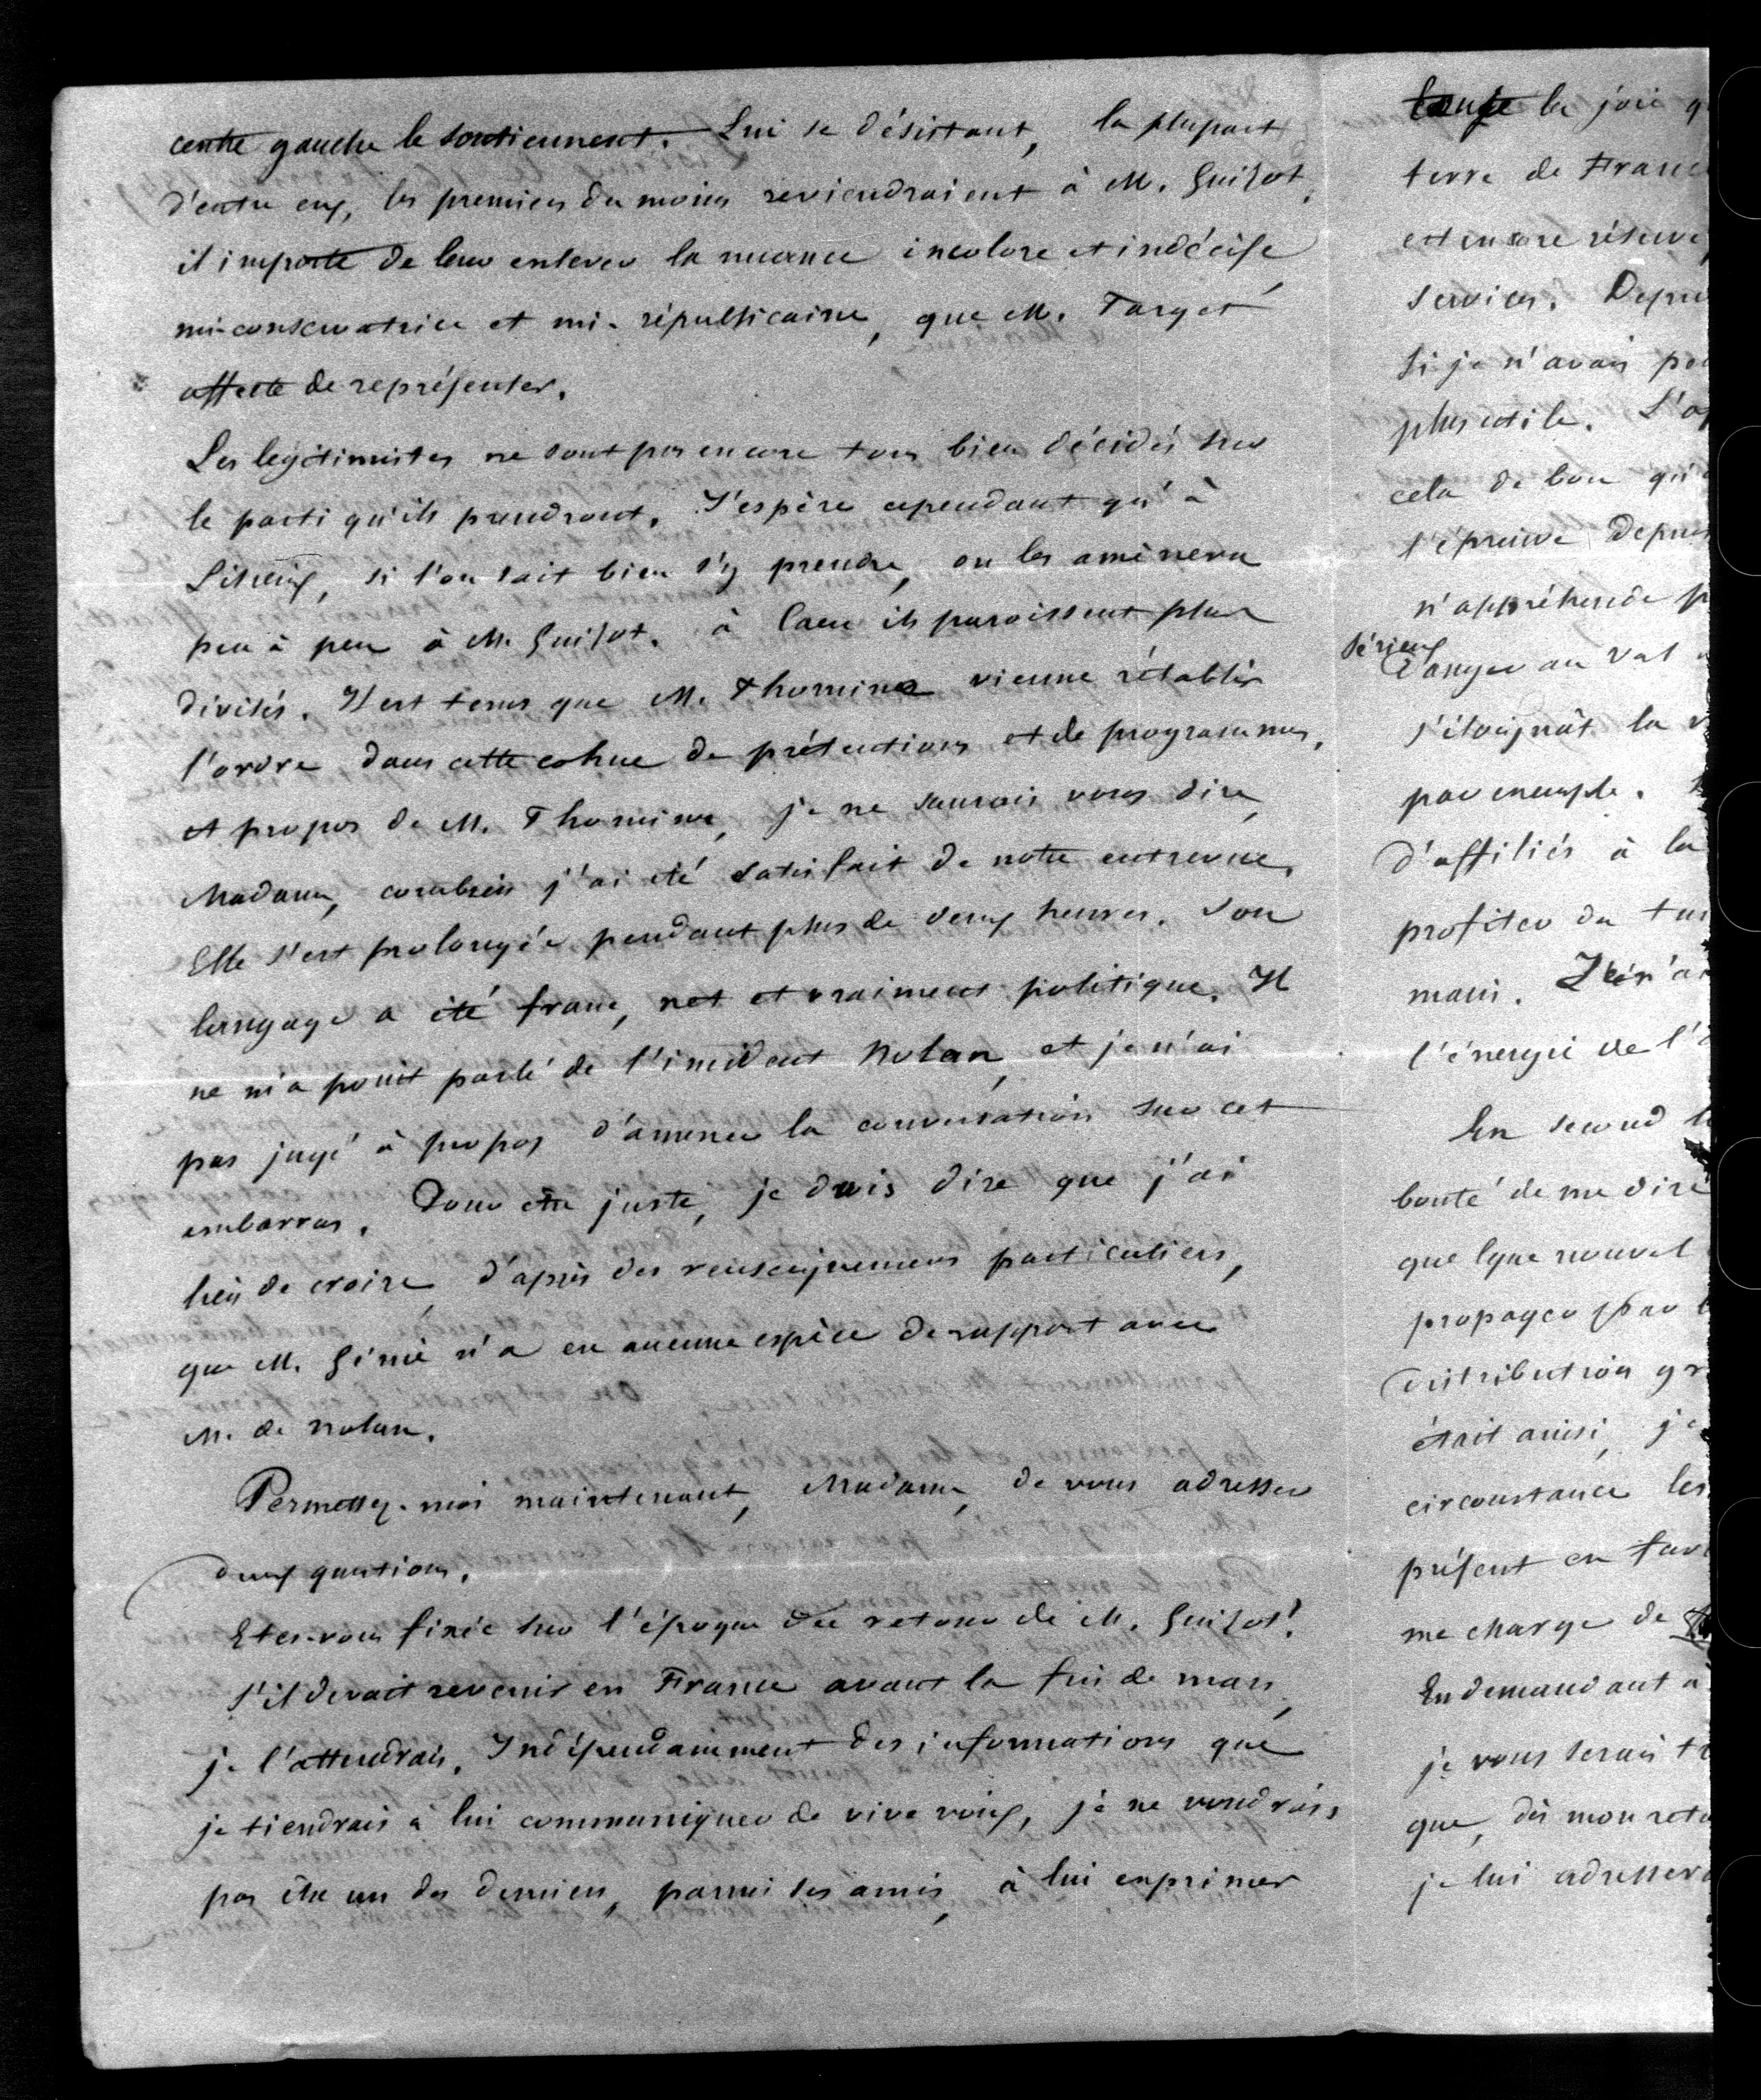 centre gauche le soutiennent. Lui se désistant, la plupart
d'entre eux, les premiers du moins reviendraient à M. Guizot.
il importe de leur enlever la nuance incolore et indécise
mi-conservatrice et mi-républicaine, que M. Target
affecte de représenter.
Les légitimistes ne sont pas encore tous bien décidés sur
le parti qu'ils prendront. J'espère cependant qu'à
Lisieux, si l'on sait bien s'y prendre, on les amènera
peu à peu à M. Guizot. à Caen ils paroissent plus
divisés. Il est tems que M. Thomine vienne rétablir
l'ordre dans cette cohue de prétentions et de programmes,
et propos de M. Thomine, je ne saurais vous dire,
Madame, combien j'ai été satisfait de notre entrevue.
Elle s'est prolongée pendant plus de deux heures. Son
langage a été franc, net et vraiment politique. Il
ne m'a point parlé de l'incident Nolan, et je n'ai
pas jugé à propos d'amener la conversation sur cet
embarras. Pour être juste, je dois dire que j'ai
lieu de croire, d'après des renseignemens particuliers,
que M. Génie n'a eu aucune espèce de rapport avec
M. de Nolan.
Permettez-moi maintenant, Madame, de vous adresser
deux questions.
Etes-vous fixée sur l'époque du retour de M. Guizot?
s'il devait revenir en France avant la fin de mars,
je l'attendrais. Indépendamment des informations que
je tiendrais à lui communiquer de vive voix, je ne voudrais
pas être un des derniers, parmi ses amis, à lui exprimer
la joie q
terre de Franc
est encore réservé
services. Depui
si je n'avais pa
plus utile. L'o
cela de bon qu'
l'épreuve depuis
n'appréhende p
sérieux
danger au Val
s'éloignât la
par exemple.
d'affiliés à la
profiter du
main. Je n'ai
l'énergie de l'
En second l
bonté de me dire
quelque nouvel
propager par
distribution gr
était ainsi, je
circonstance les
présent en fav
me charge de
En demandant à
je vous serais
que, dès mon reto
je lui adresser